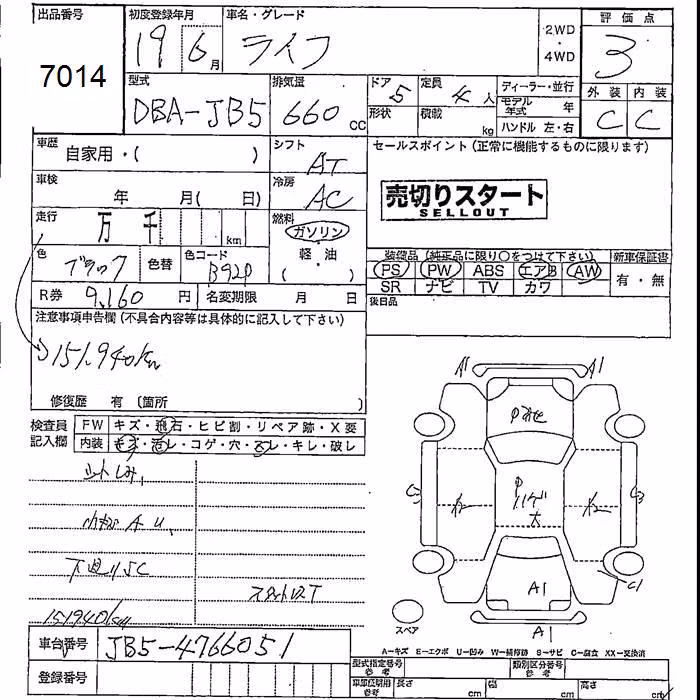 出品番号 初度登録年月 車名・グレード 2WD・4WD 評価点
7014 19 6月 ライフ 3
型式 排気量 ドア 定員 ディーラー・並行 外装 内装
DBA-JB5 660cc 5 4人 モデル年式 年 C C
形状 積載 kg ハンドル 左・右
車歴 自家用・( ) シフト AT セールスポイント(正常に機能するものに限ります)
車検 年 月( 日) 冷房 AC 売切りスタート
SELLOUT
走行 万 千 km 燃料 ガソリン・軽・油( )
色 ブラック 色替 色コード B92P 装備品(純正品に限り○をつけて下さい) 新車保証書
PS PW ABS エアB AW 有・無
SR ナビ TV カワ
R券 9,160円 名変期限 月 日 後日品
注意事項申告欄(不具合内容等は具体的に記入して下さい)
151,940km
修復歴 有(箇所
検査員記入欄 FW キズ・飛石・ヒビ割・リペア跡・X要
内装 キズ・汚レ・コゲ・穴・スレ・キレ・破レ
シートしみ
小キズ A U
下廻りSC
151940km
A1 A1
P
P
C3 C3
C1
A1
A1
スペア
A-キズ E-エクボ U-凹み W-補修跡 S-サビ C-腐食 XX-交換済
車台番号 JB5-4766051
登録番号
型式指定番号参考 類別区分番号参考
車庫証明用参考 長さ cm 幅 cm 高さ cm